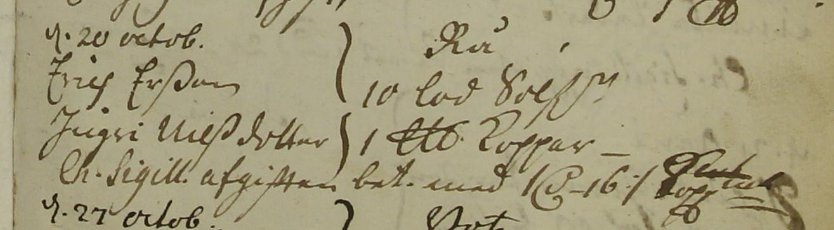 d. 20 octob. Rå
Erich Erßson 10 lod Solf
Ingri Nilßdotter 1 ℔ Koppar
Ch. Sigill. afgiften bet. med 16
d. 27 octob.